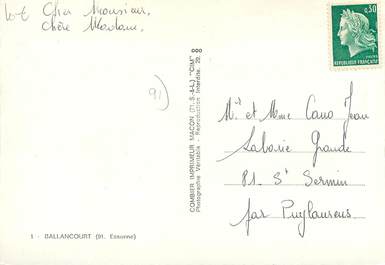 Cher Monsieur,
Chère Madame.
91)
COMBIER IMPRIMEUR MACON (71. S.-&-L.) "CIM"
Photographie Véritable - Reproduction Interdite.
0,30
REPUBLIQUE FRANÇAISE
Mr et Mme Cano Jean
Labarie Grande
81. St Sernin
par Puylaurens
1 - BALLANCOURT (91. Essonne)